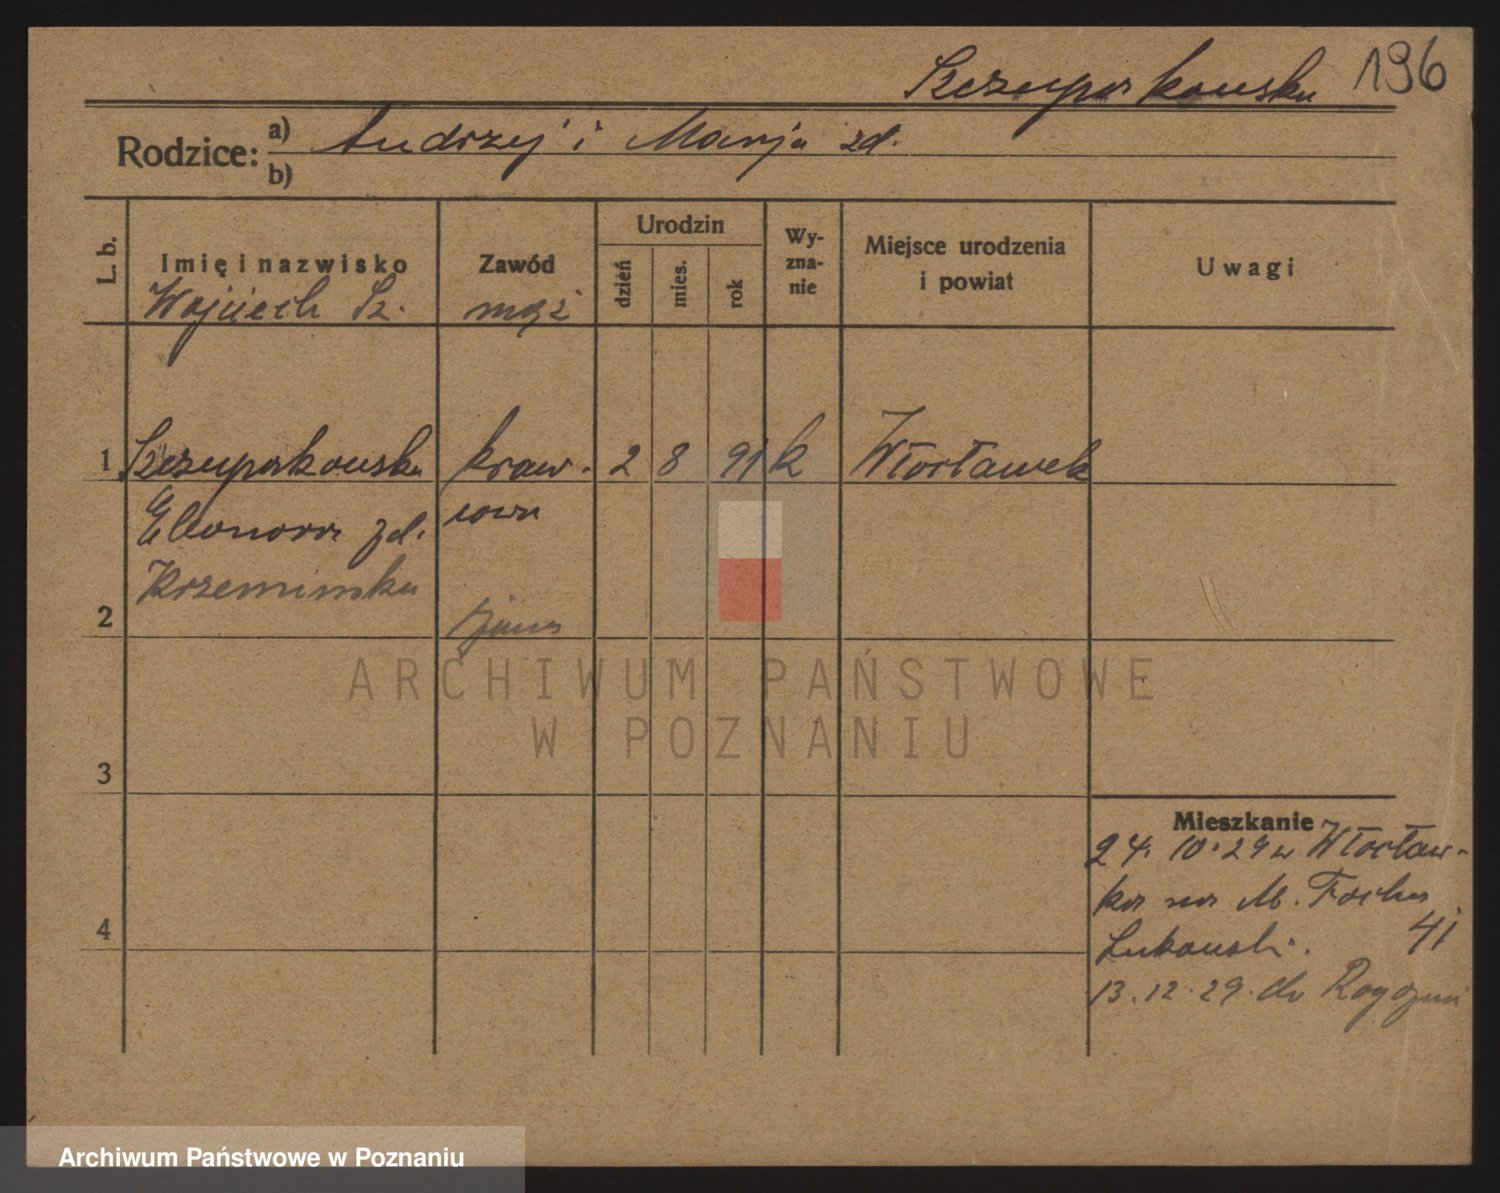 Szczuparkouska 196
Rodzice: a) Andrzej i Marja zd.
b)
L. b. Imię i nazwisko Zawód Urodzin dzień mies. rok Wy-zna-nie Miejsce urodzenia i powiat Uwagi
Wojciech Sz. mąż
1 Szczuparkouska kraw. 2 8 91 k Włocławek
Eleonora zd. cowa
Krzeminska
2 żona
3
Mieszkanie
24. 10. 29 w Włocław-
ka na M. Focha
4 Lukouski. 41
13. 12. 29. do
ARCHIWUM PAŃSTWOWE
W POZNANIU
Archiwum Państwowe w Poznaniu